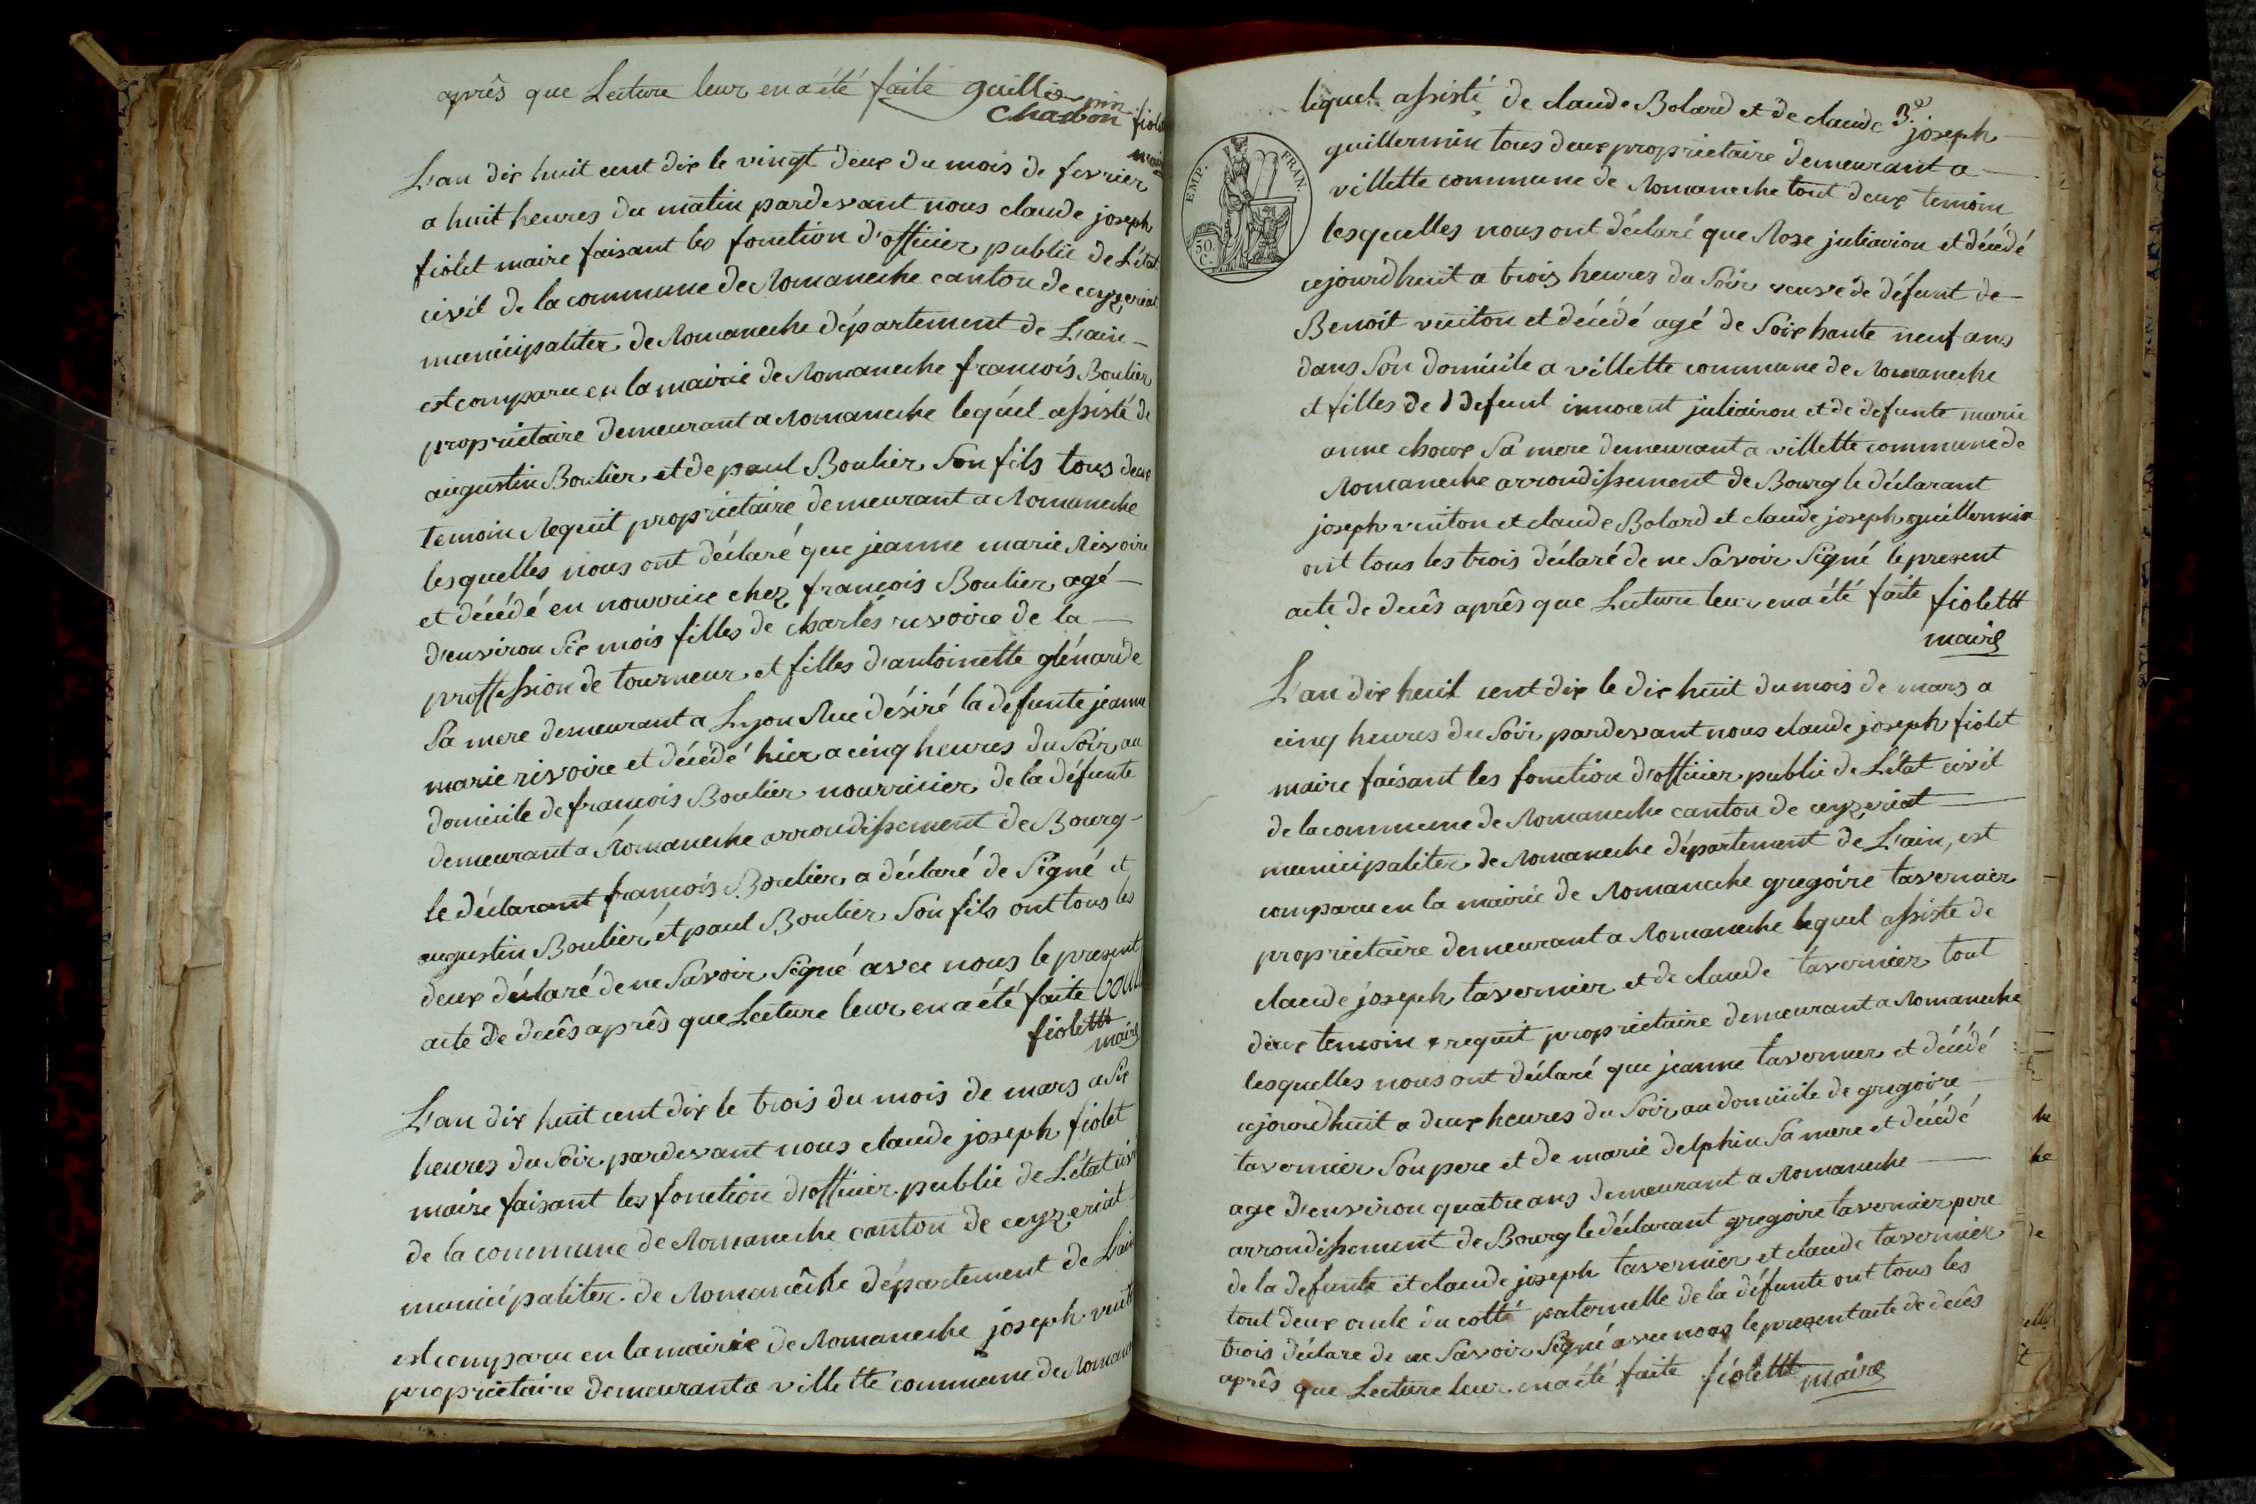 après que Lecture leur en a été faite guillermin
Charbon fiolet
maire
L'an dix huit cent dix le vingt deux du mois de fevrier
a huit heures du matin pardevant nous claude joseph
fiolet maire faisant les fonction d'officier public de L'état
civil de la commune de Romaneche canton de ceyzeriat
municipaliter de Romaneche département de L'ain
est comparu en la mairie de Romaneche francois Boulier
proprietaire demeurant a Romaneche lequel assisté de
augustin Boulier et de paul Boulier Son fils tous deux
temoin Requit proprietaire demeurant a Romaneche
lesquelles nous ont déclaré que jeanne marie Rivoire
et décédé en nourrice chez francois Boulier agé
d'environ Six mois filles de charles rivoire de la
proffession de tourneur et filles d'antoinette glénarde
Sa mere demeurant a Lyon Rue désiré la defunte jeanne
marie rivoire et décédé hier a cinq heures du Soir au
domicile de francois Boulier nourricier de la défunte
demeurant a Romaneche arrondissement de Bourg
le déclarant francois Boulier a déclaré de Signé et
augustin Boulier et paul Boulier Son fils ont tous les
deux déclaré de ne Savoir Signé avec nous le present
acte de decês aprês que Lecture leur en a été faite boul
fiolet
maire
L'an dix huit cent dix le trois du mois de mars a Six
heures du Soir pardevant nous claude joseph fiolet
maire faisant les fonction d'officier public de L'état civi
de la commune de Romaneche canton de ceyzeriat
municipaliter de Romanêche département de L'ain
est comparu en la mairie de Romaneche joseph vuit
proprietaire demeurant a villette commune de Romane
lequel assisté de claude Bolard et de claude joseph
guillermin tous deux proprietaire demeurant a
EMP. FRAN.
50 C.
villette commune de Romaneche tout deux temoin
lesquelles nous ont déclaré que Rose juliairon et décédé
cejourdhuit a trois heures du Soir veuve de défunt de
Benoit vuiton et décédé agé de Soixhante neuf ans
dans Son domicile a villette commune de Romaneche
et filles de defunt innocent juliairon et de defunte marie
anne choux Sa mere demeurant a villette commune de
Romaneche arrondissement de Bourg le déclarant
joseph vuiton et claude Bolard et claude joseph guillermin
ont tous les trois déclaré de ne Savoir Signé le present
acte de decês aprês que Lecture leur en a été faite fiolet
maire
L'an dix huit cent dix le dix huit du mois de mars a
cinq heures du Soir pardevant nous claude joseph fiolet
maire faisant les fonction d'officier public de L'état civil
de la commune de Romaneche canton de ceyzeriat
municipaliter de Romaneche département de L'ain, est
comparu en la mairie de Romaneche gregoire tavernier
proprietaire demeurant a Romaneche lequel assiste de
claude joseph tavernier et de claude tavernier tout
deux temoin requit proprietaire demeurant a Romaneche
lesquelles nous ont déclaré que jeanne tavernier et décédé
cejourdhuit a deux heures du Soir au domicile de gregoire
tavernier Son pere et de marie delphin Sa mere et décédé
age d'environ quatre ans demeurant a Romaneche
arrondissement de Bourg le déclarant gregoire tavernier pere
de la defunte et claude joseph tavernier et claude tavernier
tout deux oncle du cotté paternelle de la défunte ont tous les
trois déclare de ne Savoir Signé avec nous le present acte de decês
aprês que Lecture leur en a été faite fiolet maire